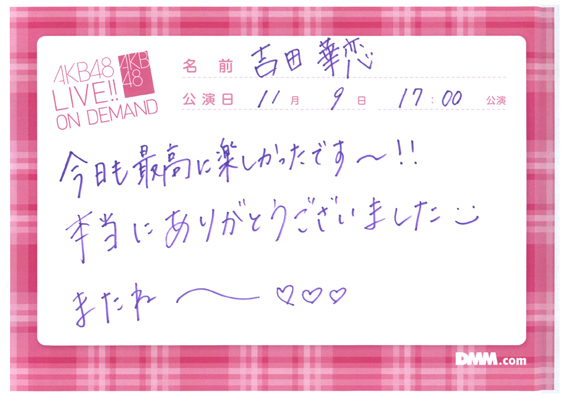 AKB48
LIVE!!
ON DEMAND
AKB
48
名前 吉田華恋
公演日 11月 9日 17:00 公演
今日も最高に楽しかったです〜!!
本当にありがとうございました
またね 〜 ♡♡♡
DMM.com